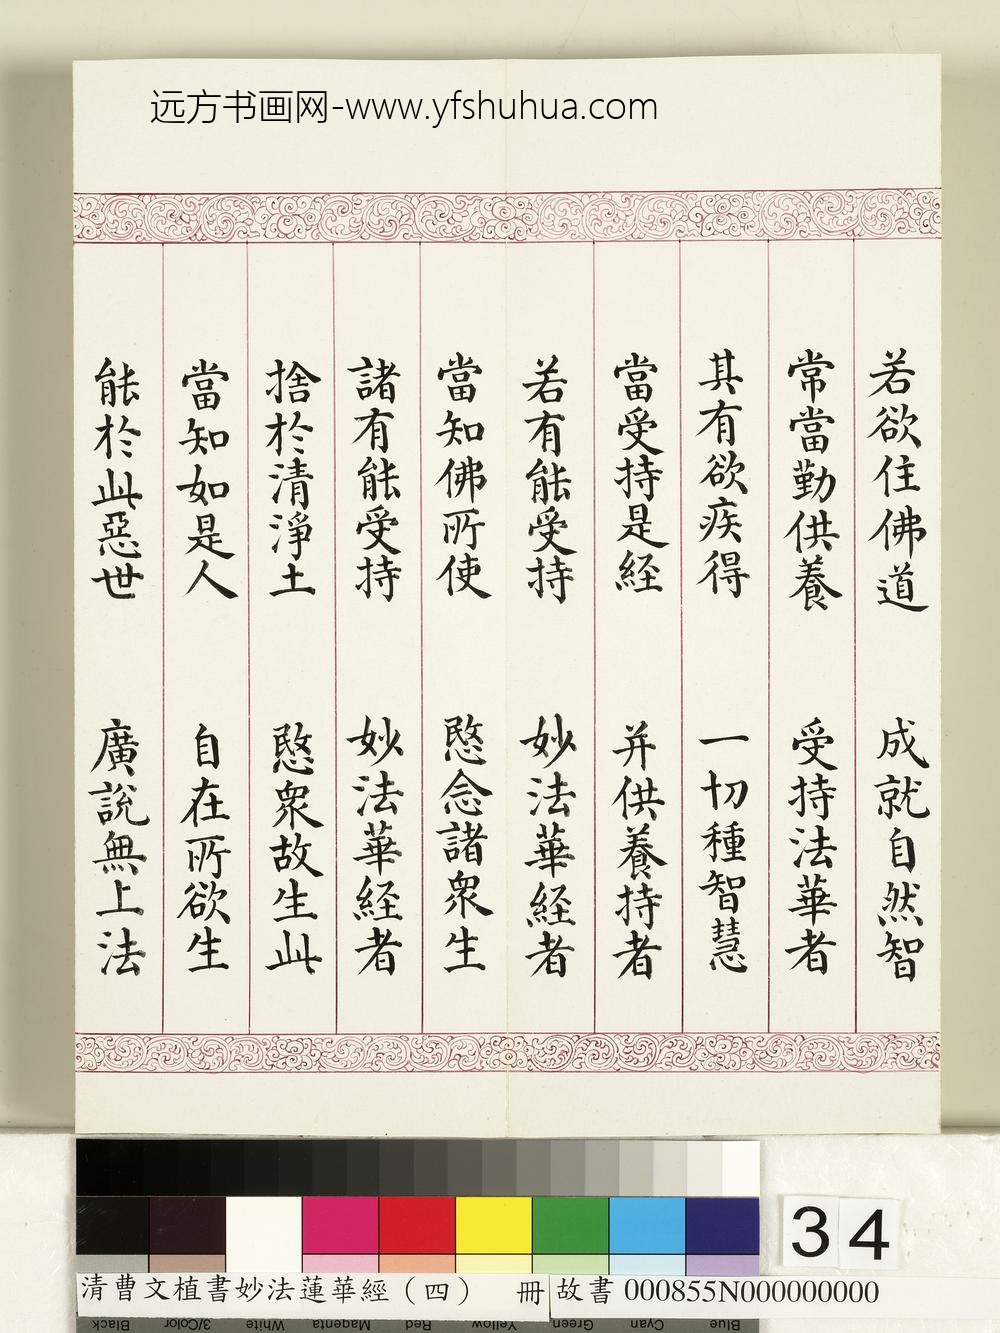 远方书画网-www.yfshuhua.com
若欲住佛道 成就自然智
常當勤供養 受持法華者
其有欲疾得 一切種智慧
當受持是経 并供養持者
若有能受持 妙法華経者
當知佛所使 愍念諸眾生
諸有能受持 妙法華経者
捨於清淨土 愍眾故生此
當知如是人 自在所欲生
能於此惡世 廣說無上法
34
清曹文植書妙法蓮華經（四） 冊
故書 000855N000000000
Black 3/Color White Magenta Red Yellow Green Cyan Blue